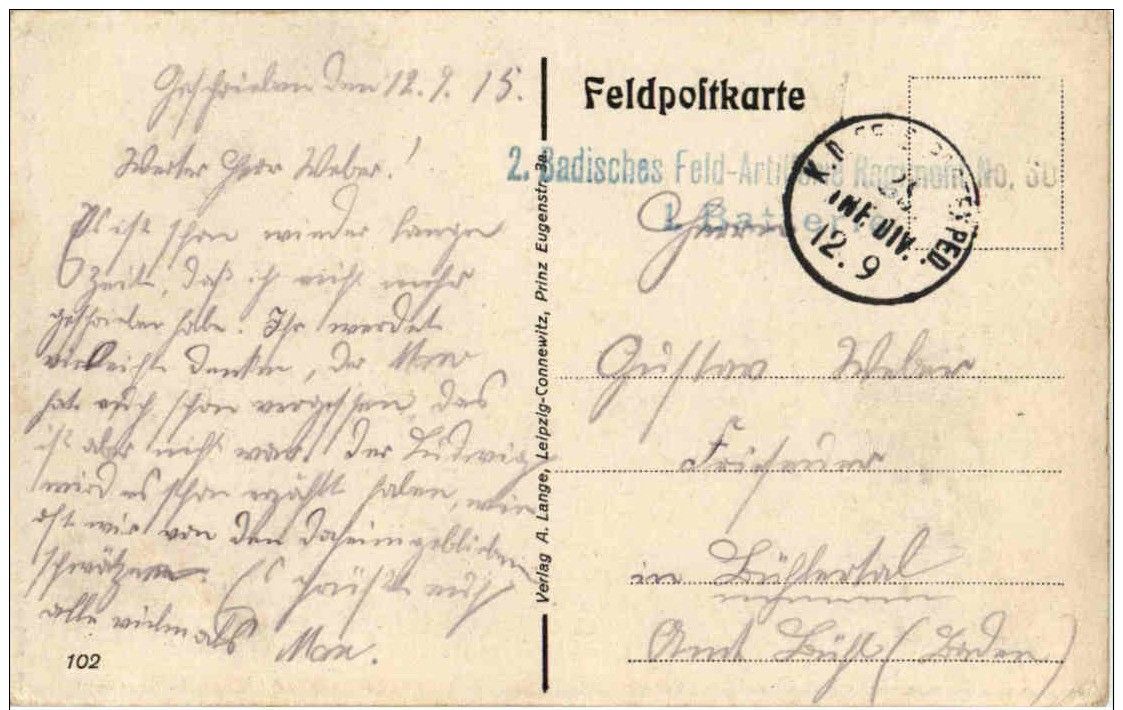 Geschrieben den 12. 9. 15.
Werter Herr Weber!
Es ist schon wieder lange
Zeit, daß ich nicht mehr
geschrieben habe. Ihr werdet
vielleicht denken, der
hat euch schon vergessen das
ist aber nicht war. Der Ludwig
wird es schon erzählt haben, wie
oft wir von den daheimgeblieben
schwätzen. Es grüßt euch
alle vielmals
102
Verlag A. Lange, Leipzig-Connewitz, Prinz Eugenstr.
Feldpostkarte
2. Badisches Feld-Artillerie Regiment No. 30
1. Batterie
K.D. FELDPOSTEXPED.
INF. DIV.
12. 9
Herrn
Gustav Weber
Friseur
in Bühlertal
Amt Bühl (Baden)